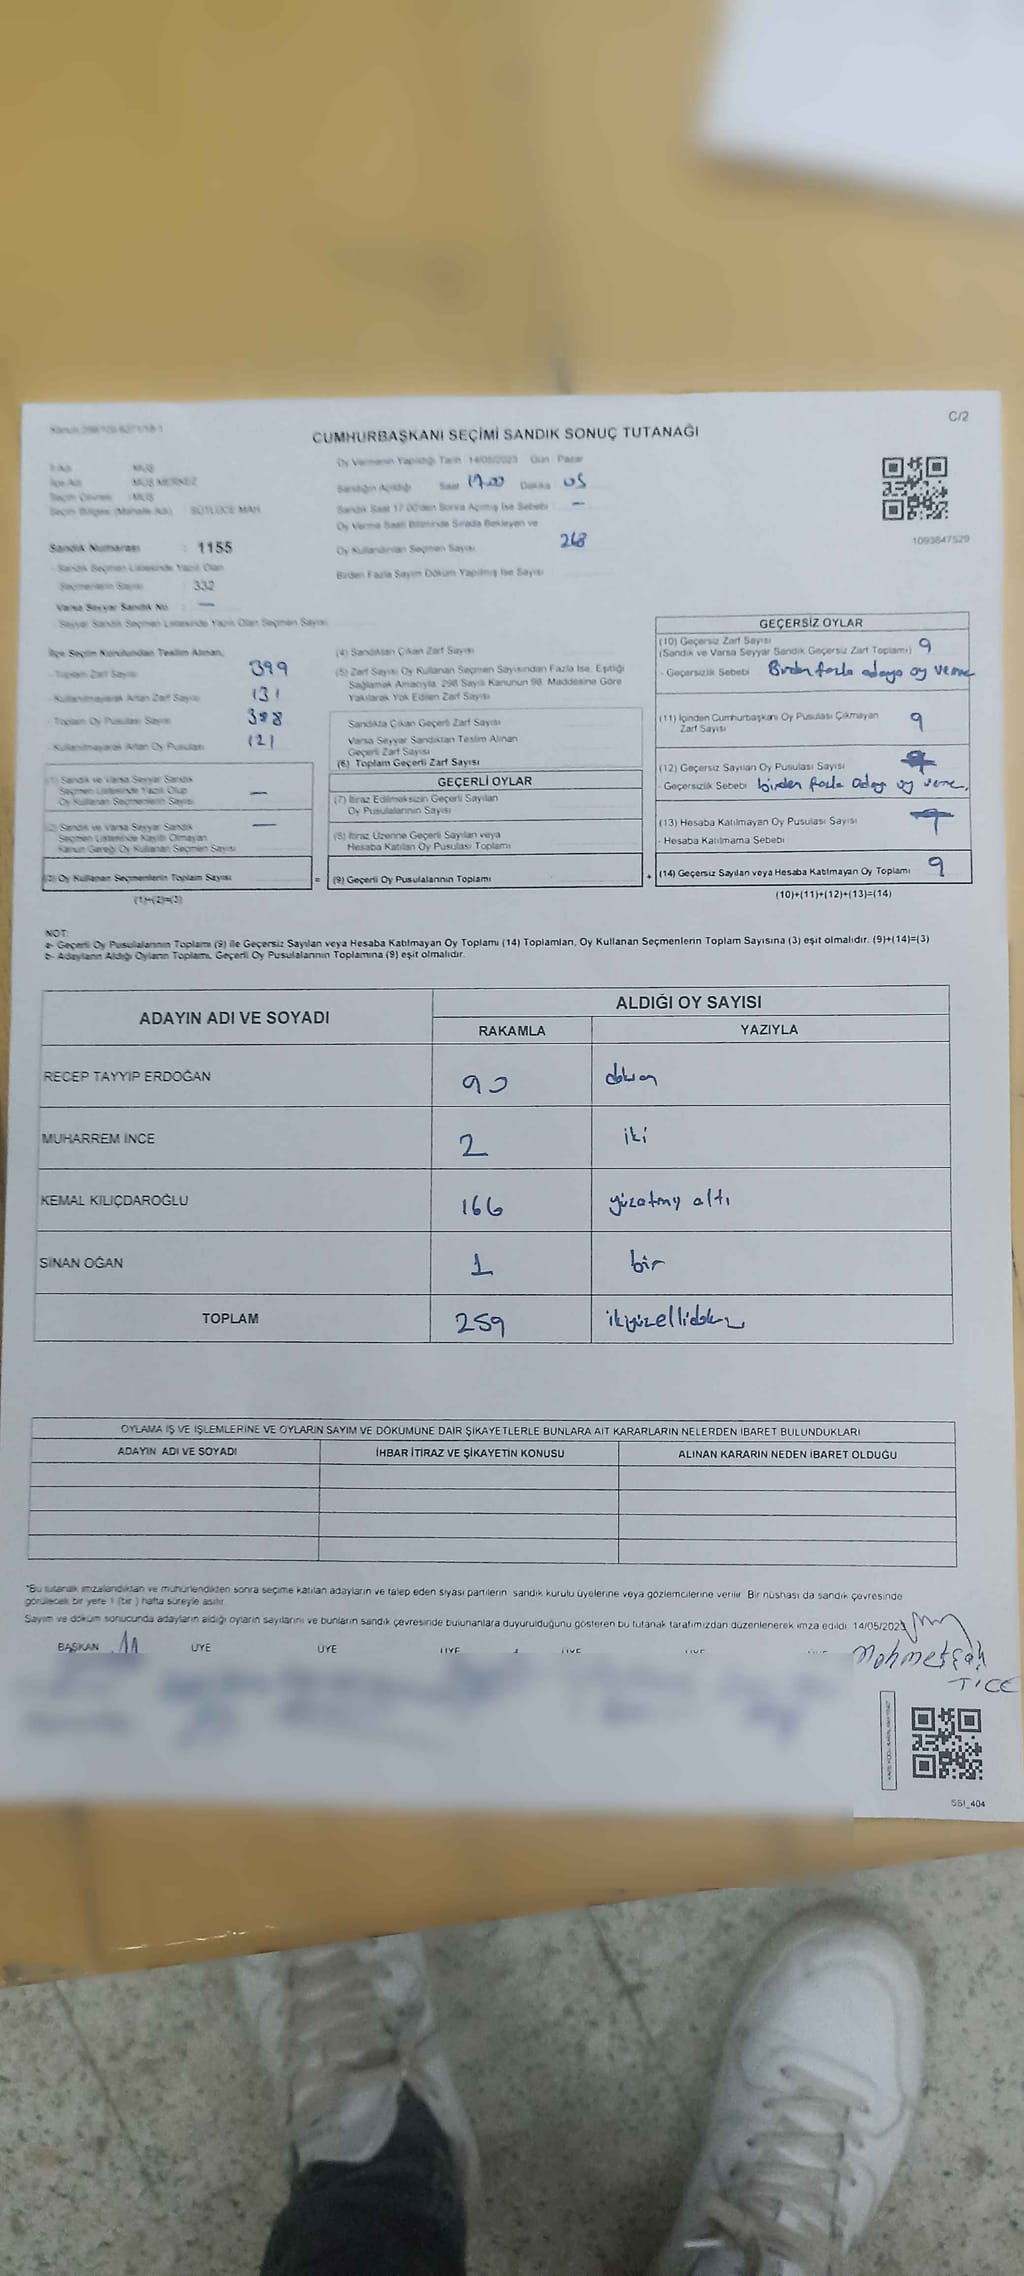 C/2
CUMHURBAŞKANI SEÇİMİ SANDIK SONUÇ TUTANAĞI
İl Adı : MUŞ
İlçe Adı : MUŞ MERKEZ
Seçim Çevresi : MUŞ
Seçim Bölgesi (Mahalle Adı) : SÜTLÜCE MAH.
Sandık Numarası : 1155
Sandık Seçmen Listesinde Yazılı Olan
Seçmenlerin Sayısı : 332
Varsa Seyyar Sandık No : —
Seyyar Sandık Seçmen Listesinde Yazılı Olan Seçmen Sayısı
Oy Vermenin Yapıldığı Tarih : 14/05/2023 Gün : Pazar
Sandığın Açıldığı Saat 17.00 Dakika 05
Sandık Saat 17:00'den Sonra Açılmış İse Sebebi —
Oy Verme Saati Bitiminde Sırada Bekleyen ve
Oy Kullandırılan Seçmen Sayısı 268
Birden Fazla Sayım Döküm Yapılmış İse Sayısı
1093847529
İlçe Seçim Kurulundan Teslim Alınan;
- Toplam Zarf Sayısı 399
- Kullanılmayarak Artan Zarf Sayısı 131
- Toplam Oy Pusulası Sayısı
- Kullanılmayarak Artan Oy Pusulası 121
(1) Sandık ve Varsa Seyyar Sandık
Seçmen Listesinde Yazılı Olup
Oy Kullanan Seçmenlerin Sayısı —
(2) Sandık ve Varsa Seyyar Sandık
Seçmen Listesinde Kayıtlı Olmayan
Kanun Gereği Oy Kullanan Seçmen Sayısı —
(3) Oy Kullanan Seçmenlerin Toplam Sayısı =
(1)+(2)=(3)
(4) Sandıktan Çıkan Zarf Sayısı
(5) Zarf Sayısı Oy Kullanan Seçmen Sayısından Fazla İse, Eşitliği
Sağlamak Amacıyla, 298 Sayılı Kanunun 98. Maddesine Göre
Yakılarak Yok Edilen Zarf Sayısı
Sandıkta Çıkan Geçerli Zarf Sayısı
Varsa Seyyar Sandıktan Teslim Alınan
Geçerli Zarf Sayısı
(6) Toplam Geçerli Zarf Sayısı
GEÇERLİ OYLAR
(7) İtiraz Edilmeksizin Geçerli Sayılan
Oy Pusulalarının Sayısı
(8) İtiraz Üzerine Geçerli Sayılan veya
Hesaba Katılan Oy Pusulası Toplamı
(9) Geçerli Oy Pusulalarının Toplamı +
GEÇERSİZ OYLAR
(10) Geçersiz Zarf Sayısı 9
(Sandık ve Varsa Seyyar Sandık Geçersiz Zarf Toplamı)
- Geçersizlik Sebebi Birden fazla adaya oy verme
(11) İçinden Cumhurbaşkanı Oy Pusulası Çıkmayan
Zarf Sayısı 9
(12) Geçersiz Sayılan Oy Pusulası Sayısı
- Geçersizlik Sebebi birden fazla aday oy verme.
(13) Hesaba Katılmayan Oy Pusulası Sayısı
- Hesaba Katılmama Sebebi
(14) Geçersiz Sayılan veya Hesaba Katılmayan Oy Toplamı 9
(10)+(11)+(12)+(13)=(14)
NOT:
a- Geçerli Oy Pusulalarının Toplamı (9) ile Geçersiz Sayılan veya Hesaba Katılmayan Oy Toplamı (14) Toplamları, Oy Kullanan Seçmenlerin Toplam Sayısına (3) eşit olmalıdır. (9)+(14)=(3)
b- Adayların Aldığı Oyların Toplamı, Geçerli Oy Pusulalarının Toplamına (9) eşit olmalıdır.
ADAYIN ADI VE SOYADI ALDIĞI OY SAYISI
RAKAMLA YAZIYLA
RECEP TAYYİP ERDOĞAN 90 doksan
MUHARREM İNCE 2 iki
KEMAL KILIÇDAROĞLU 166 yüzatmış altı
SİNAN OĞAN 1 bir
TOPLAM 259 ikiyüzellidokuz
OYLAMA İŞ VE İŞLEMLERİNE VE OYLARIN SAYIM VE DÖKÜMÜNE DAİR ŞİKAYETLERLE BUNLARA AİT KARARLARIN NELERDEN İBARET BULUNDUKLARI
ADAYIN ADI VE SOYADI İHBAR İTİRAZ VE ŞİKAYETİN KONUSU ALINAN KARARIN NEDEN İBARET OLDUĞU
*Bu tutanak imzalandıktan ve mühürlendikten sonra seçime katılan adayların ve talep eden siyasi partilerin sandık kurulu üyelerine veya gözlemcilerine verilir. Bir nüshası da sandık çevresinde
görülecek bir yere 1 (bir) hafta süreyle asılır.
Sayım ve döküm sonucunda adayların aldığı oyların sayılarını ve bunların sandık çevresinde bulunanlara duyurulduğunu gösteren bu tutanak tarafımızdan düzenlenerek imza edildi. 14/05/2023
BAŞKAN ÜYE ÜYE ÜYE ÜYE ÜYE ÜYE
Mehmetşah
TİCE
SS1_404